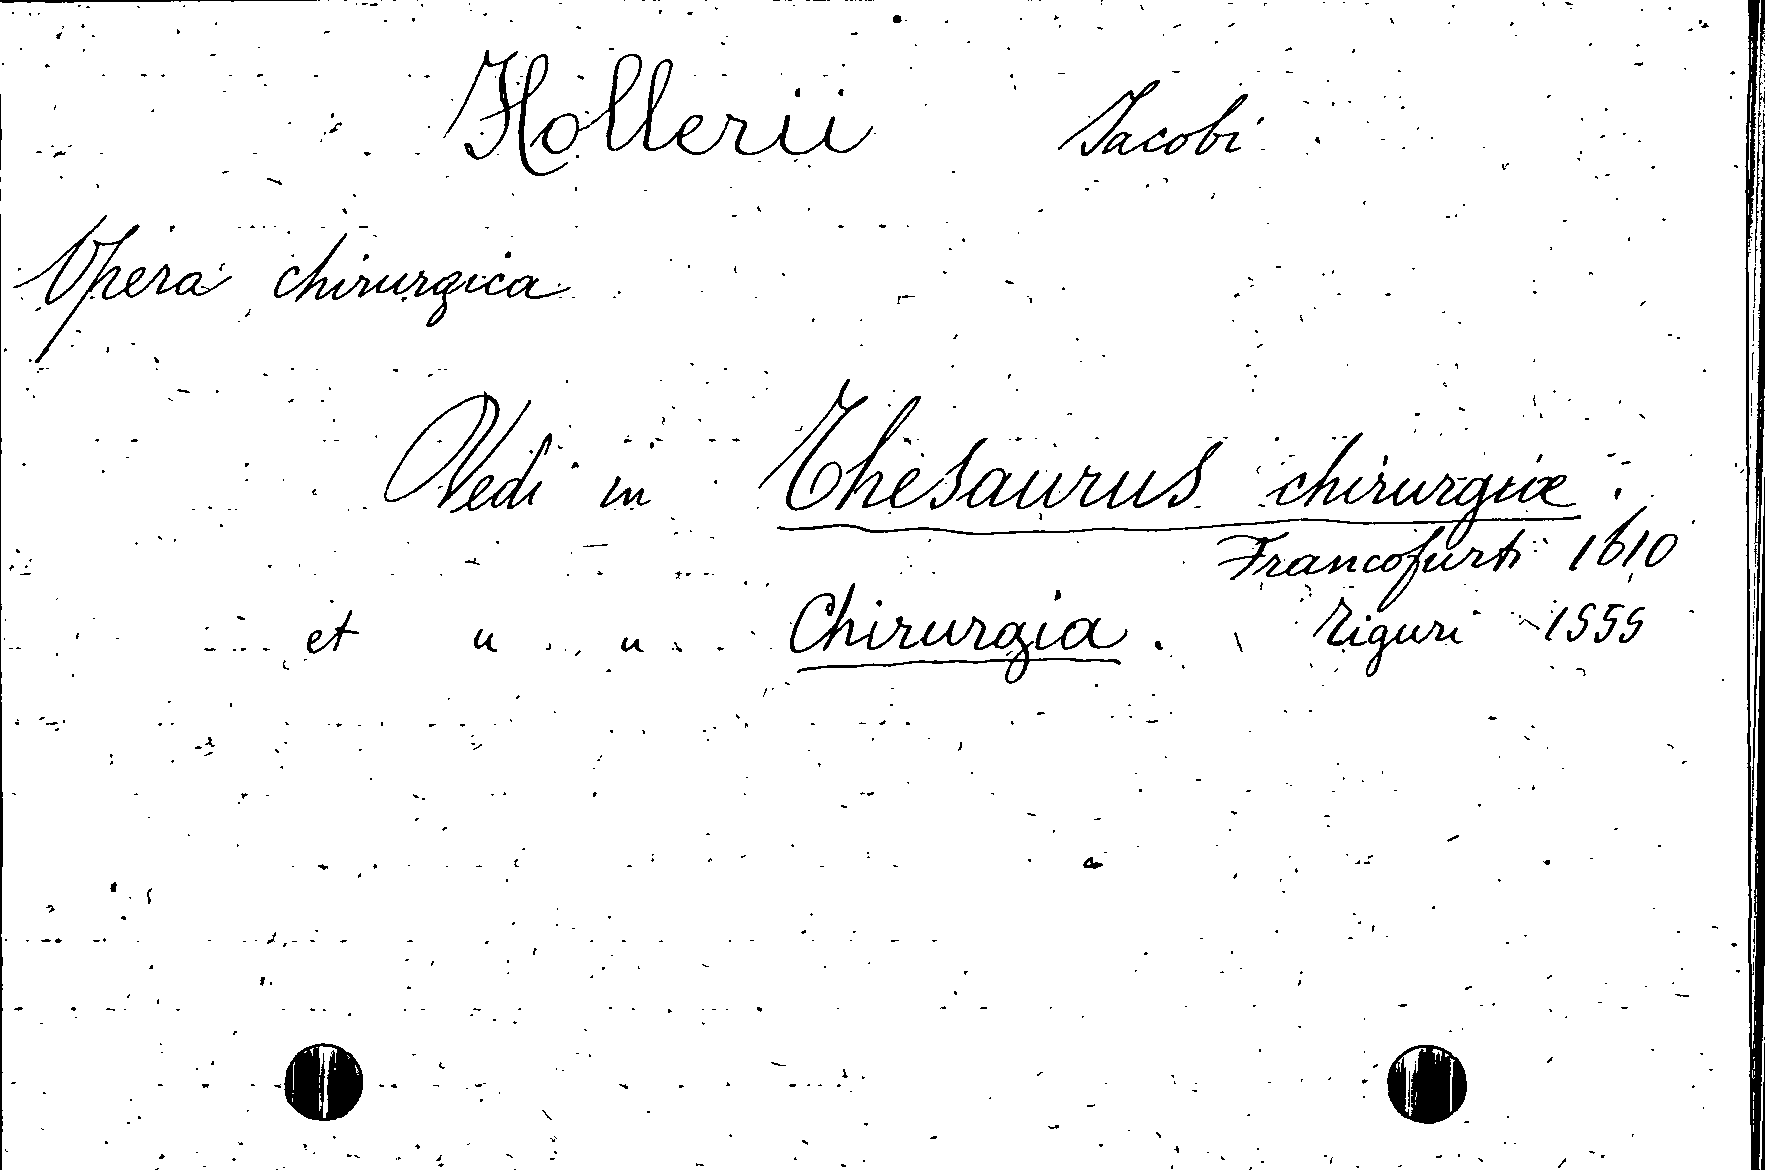 Hollerii Jacobi
Opera chirurgica
Vedi in Thesaurus chirurgiæ.
Francofurti 1610
et " " Chirurgia. Tiguri 1555